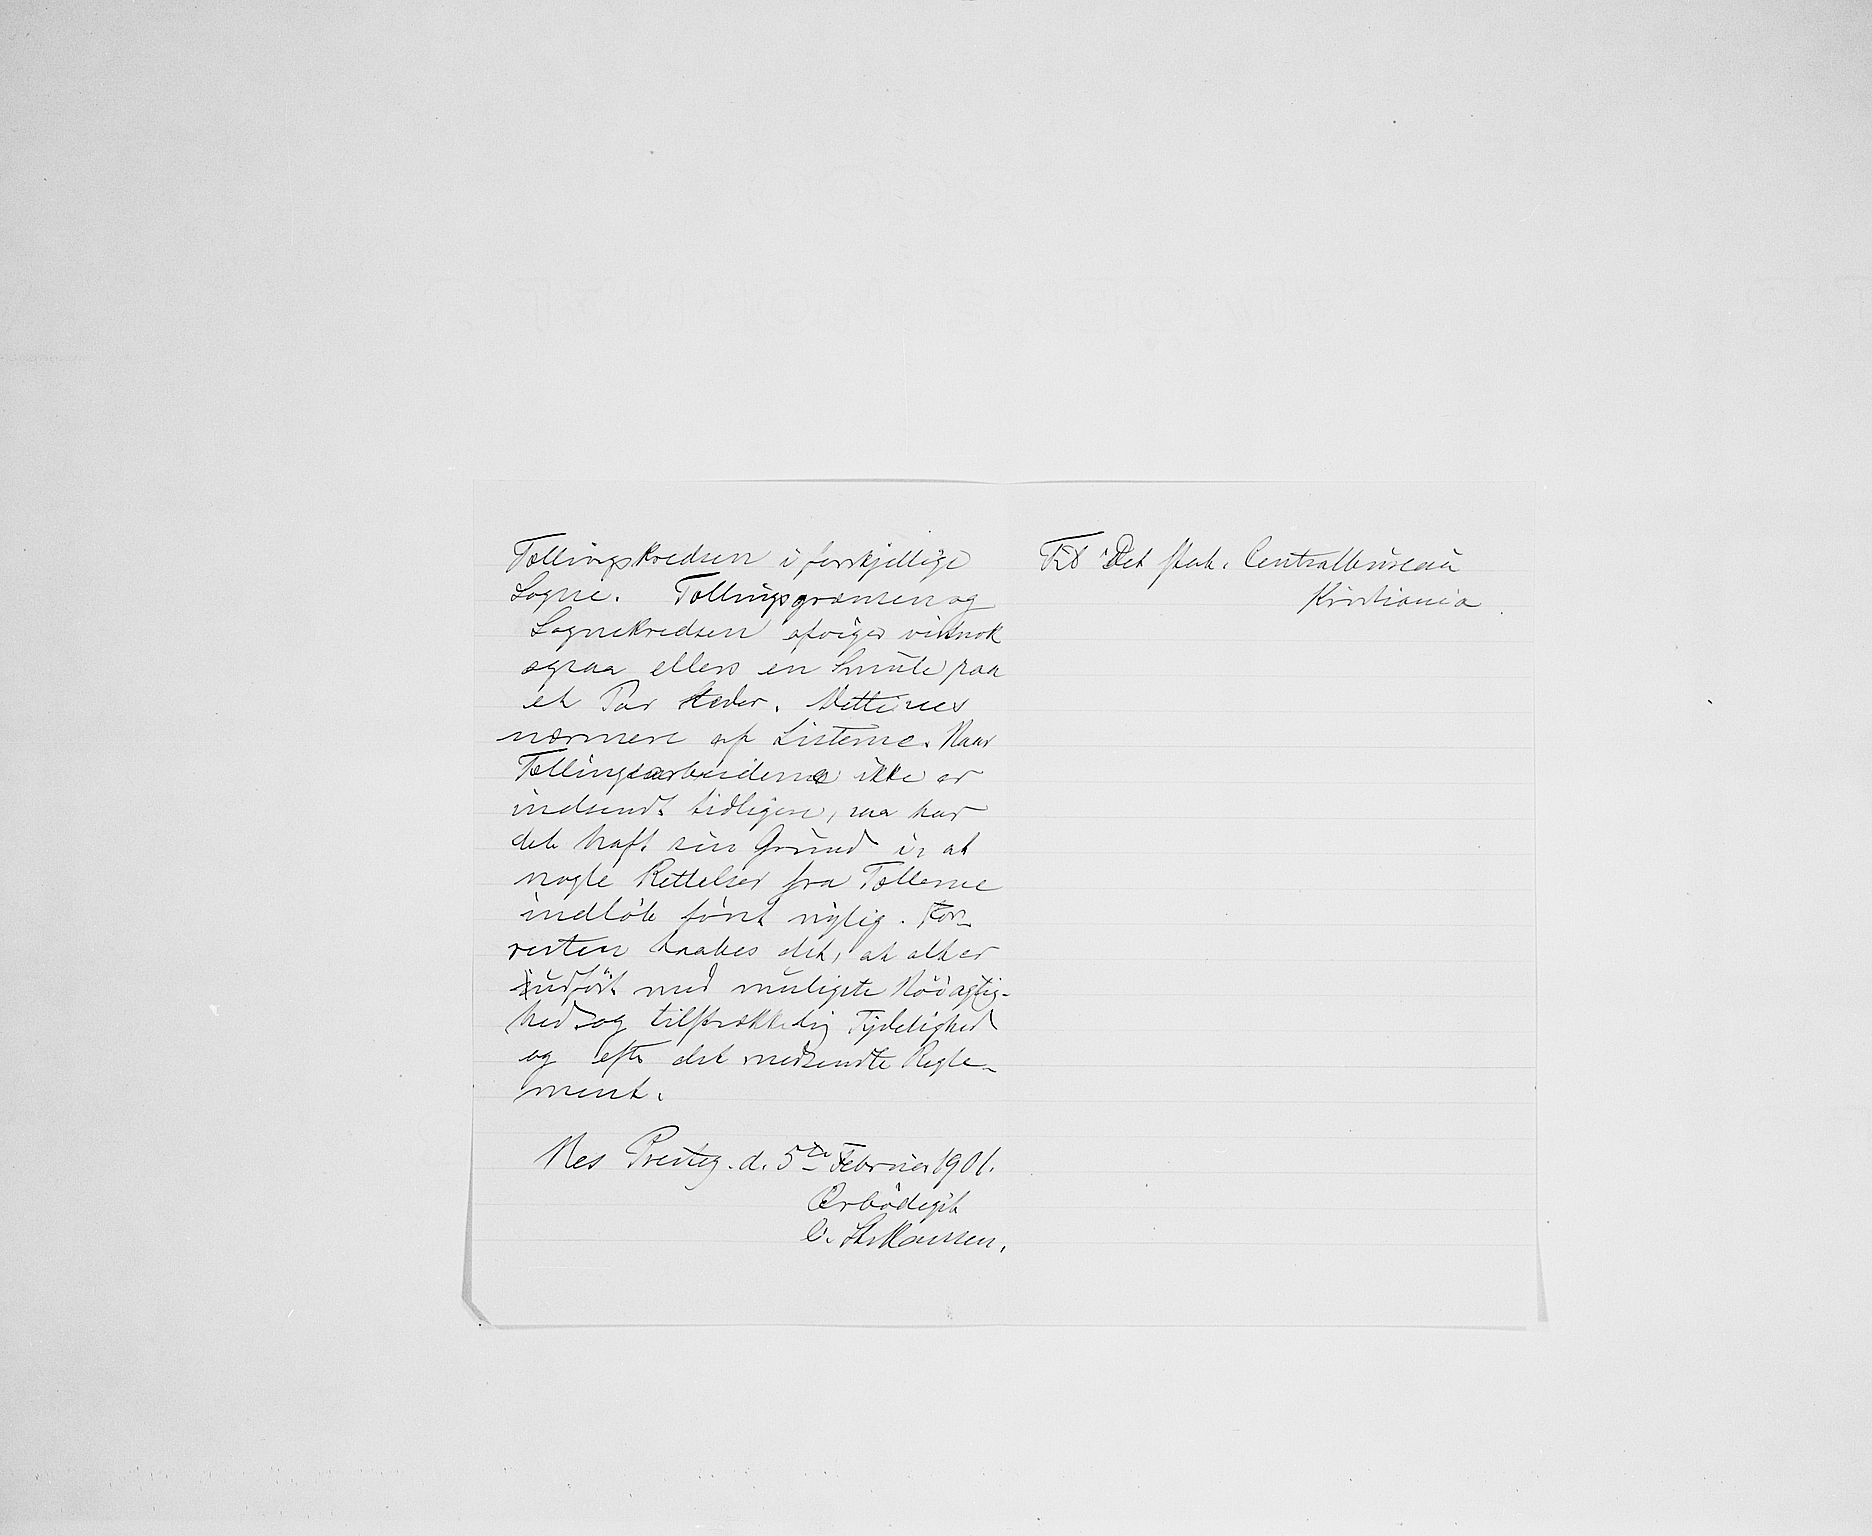 Tællingskredsen i forskjellige
Sogne. Tællingsgrænsen og
Sognekredsen afviger vistnok
ogsaa ellers en Smule paa
et Par Steder. Dette sees
nærmere af Listerne. Naar
Tællingsarbeiderne ikke er
indsendt tidligere, saa har
det haft sin Grund i, at
nogle Rettelser fra Tællerne
indløb først nylig. For-
resten haabes det, at alt er
udført med muligste Nöiagtig-
hed og tilstrækkelig Tydelighed
og efter det medsendte Regle-
ment.
Nes Prestg. d. 5te Februar 1901.
Ærbødigst
O. St. Hansen.
Til Det stat. Centralbureau
Kristiania.